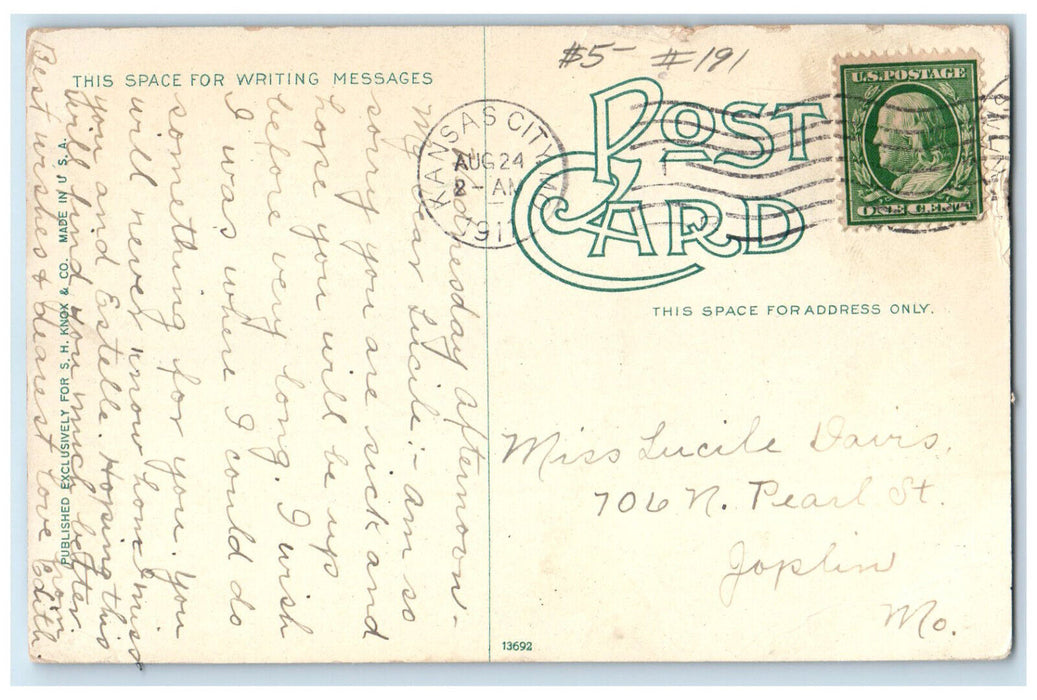 $5- #191
THIS SPACE FOR WRITING MESSAGES
POST CARD
U.S. POSTAGE
ONE CENT
KANSAS CITY, MO.
AUG 24
2-AM
191
THIS SPACE FOR ADDRESS ONLY.
Wednesday afternoon-
My dear Lucile:- am so
sorry you are sick and
hope you will be up
before very long. I wish
I was where I could do
something for you. You
will never know how I miss
you and Estelle. Hoping this
will find you much better.
Best wishes & dearest love from
Edith.
Miss Lucile Davis,
706 N. Pearl St.
Joplin
Mo.
PUBLISHED EXCLUSIVELY FOR S. H. KNOX & CO. MADE IN U. S. A.
13692